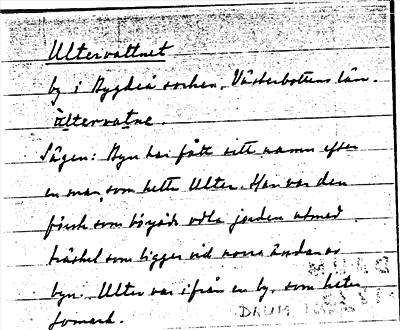 Ultervattnet
by i Bygdeå socken, Västerbottens län.
ultervatne.
Sägen: Byn har fått sitt namn efter
en man, som hette Ulter. Han var den
först som började odla jorden utmed
träsket som ligger vid norra ändan av
byn. Ulter var ifrån en by, som heter
DAUM